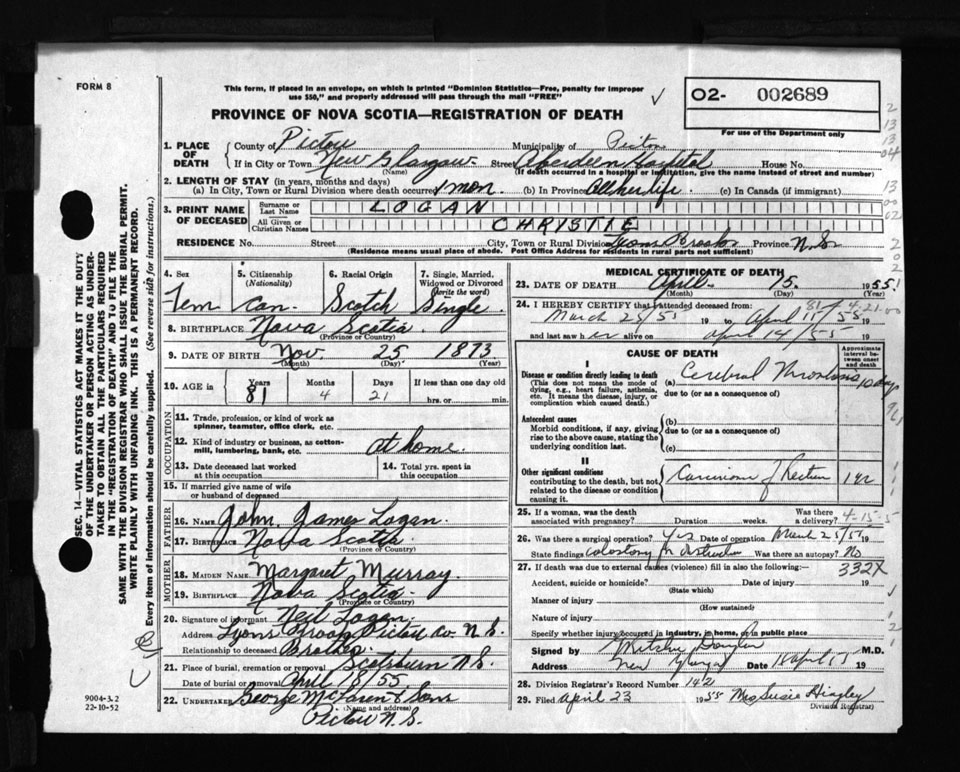 FORM 8
This form, if placed in an envelope, on which is printed "Dominion Statistics—Free, penalty for improper
use $50," and properly addressed will pass through the mail "FREE"
O2- 002689
PROVINCE OF NOVA SCOTIA—REGISTRATION OF DEATH
For use of the Department only
1. PLACE OF DEATH
County of Pictou Municipality of Pictou
If in City or Town New Glasgow Street Aberdeen Hospital House No.
(Name) (If death occurred in a hospital or institution, give the name instead of street and number)
2. LENGTH OF STAY (in years, months and days)
(a) In City, Town or Rural Division where death occurred 1 mon. (b) In Province All her life (c) In Canada (if immigrant)
3. PRINT NAME OF DECEASED
Surname or Last Name LOGAN
All Given or Christian Names CHRYSTIE
RESIDENCE No. Street City, Town or Rural Division Lyons Brook Province N.S.
(Residence means usual place of abode. Post Office Address for residents in rural parts not sufficient)
4. Sex Fem
5. Citizenship (Nationality) Can.
6. Racial Origin Scotch
7. Single, Married, Widowed or Divorced (write the word) Single
8. BIRTHPLACE Nova Scotia
(Province or Country)
9. DATE OF BIRTH Nov. 25 1873
(Month) (Day) (Year)
10. AGE in Years Months Days If less than one day old
81 4 21 hrs. or min.
OCCUPATION
11. Trade, profession, or kind of work as
spinner, teamster, office clerk, etc.
12. Kind of industry or business, as cotton-
mill, lumbering, bank, etc. at home
13. Date deceased last worked
at this occupation
14. Total yrs. spent in
this occupation
15. If married give name of wife
or husband of deceased
FATHER
16. NAME John James Logan
17. BIRTHPLACE Nova Scotia
(Province or Country)
MOTHER
18. MAIDEN NAME Margaret Murray
19. BIRTHPLACE Nova Scotia
(Province or Country)
20. Signature of informant Neil Logan
Address Lyons Brook Pictou Co. N.S.
Relationship to deceased Brother
21. Place of burial, cremation or removal Scotsburn N.S.
Date of burial or removal April 18/55
22. UNDERTAKER George McLaren & Sons
(Name and address)
Pictou N.S.
MEDICAL CERTIFICATE OF DEATH
23. DATE OF DEATH April 15. 1955
(Month) (Day) (Year)
24. I HEREBY CERTIFY that I attended deceased from:
March 25/55 19 to April 15/55 19
and last saw h er alive on April 14/55
81-4-21
CAUSE OF DEATH
Approximate interval between onset and death
I
Disease or condition directly leading to death
(This does not mean the mode of
dying, e.g., heart failure, asthenia,
etc. It means the disease, injury, or
complication which caused death.)
(a) Cerebral Thrombosis 10 days
due to (or as a consequence of)
Antecedent causes
Morbid conditions, if any, giving
rise to the above cause, stating the
underlying condition last.
(b)
due to (or as a consequence of)
(c)
II
Other significant conditions
contributing to the death, but not
related to the disease or condition
causing it.
Carcinoma of Rectum
25. If a woman, was the death
associated with pregnancy? Duration weeks. Was there
a delivery?
4-15-5
26. Was there a surgical operation? Yes Date of operation March 25/55 19
State findings Colostomy for obstruction Was there an autopsy? No
27. If death was due to external causes (violence) fill in also the following:— 332X
Accident, suicide or homicide? Date of injury 19
(State which)
Manner of injury
(How sustained)
Nature of injury
Specify whether injury occurred in industry, in home, or in public place
Signed by M.D.
Address New Glasgow Date 18 April 55 19
28. Division Registrar's Record Number 142
29. Filed April 23 1955 Mrs Susie Hingley
Division Registrar
SEC. 14—VITAL STATISTICS ACT MAKES IT THE DUTY
OF THE UNDERTAKER OR PERSON ACTING AS UNDER-
TAKER TO OBTAIN ALL THE PARTICULARS REQUIRED
IN THE "REGISTRATION OF DEATH" AND TO FILE THE
SAME WITH THE DIVISION REGISTRAR WHO SHALL ISSUE THE BURIAL PERMIT.
WRITE PLAINLY WITH UNFADING INK. THIS IS A PERMANENT RECORD.
Every item of information should be carefully supplied. (See reverse side for instructions.)
9004-3.2
22-10-52